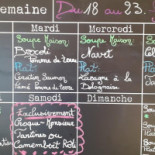 emaine Du 18 au 23.
Mardi Mercredi
Soupe Maison Soupe Maison
Brocoli Navet
Pommes de terre
Plat Plat
Gratin Saumon Lasagne à la
Pommes de terre Bolognaise
Samedi Dimanche
Exclusivement
Croque-Monsieur
Tartines ou
Camembert Rôti